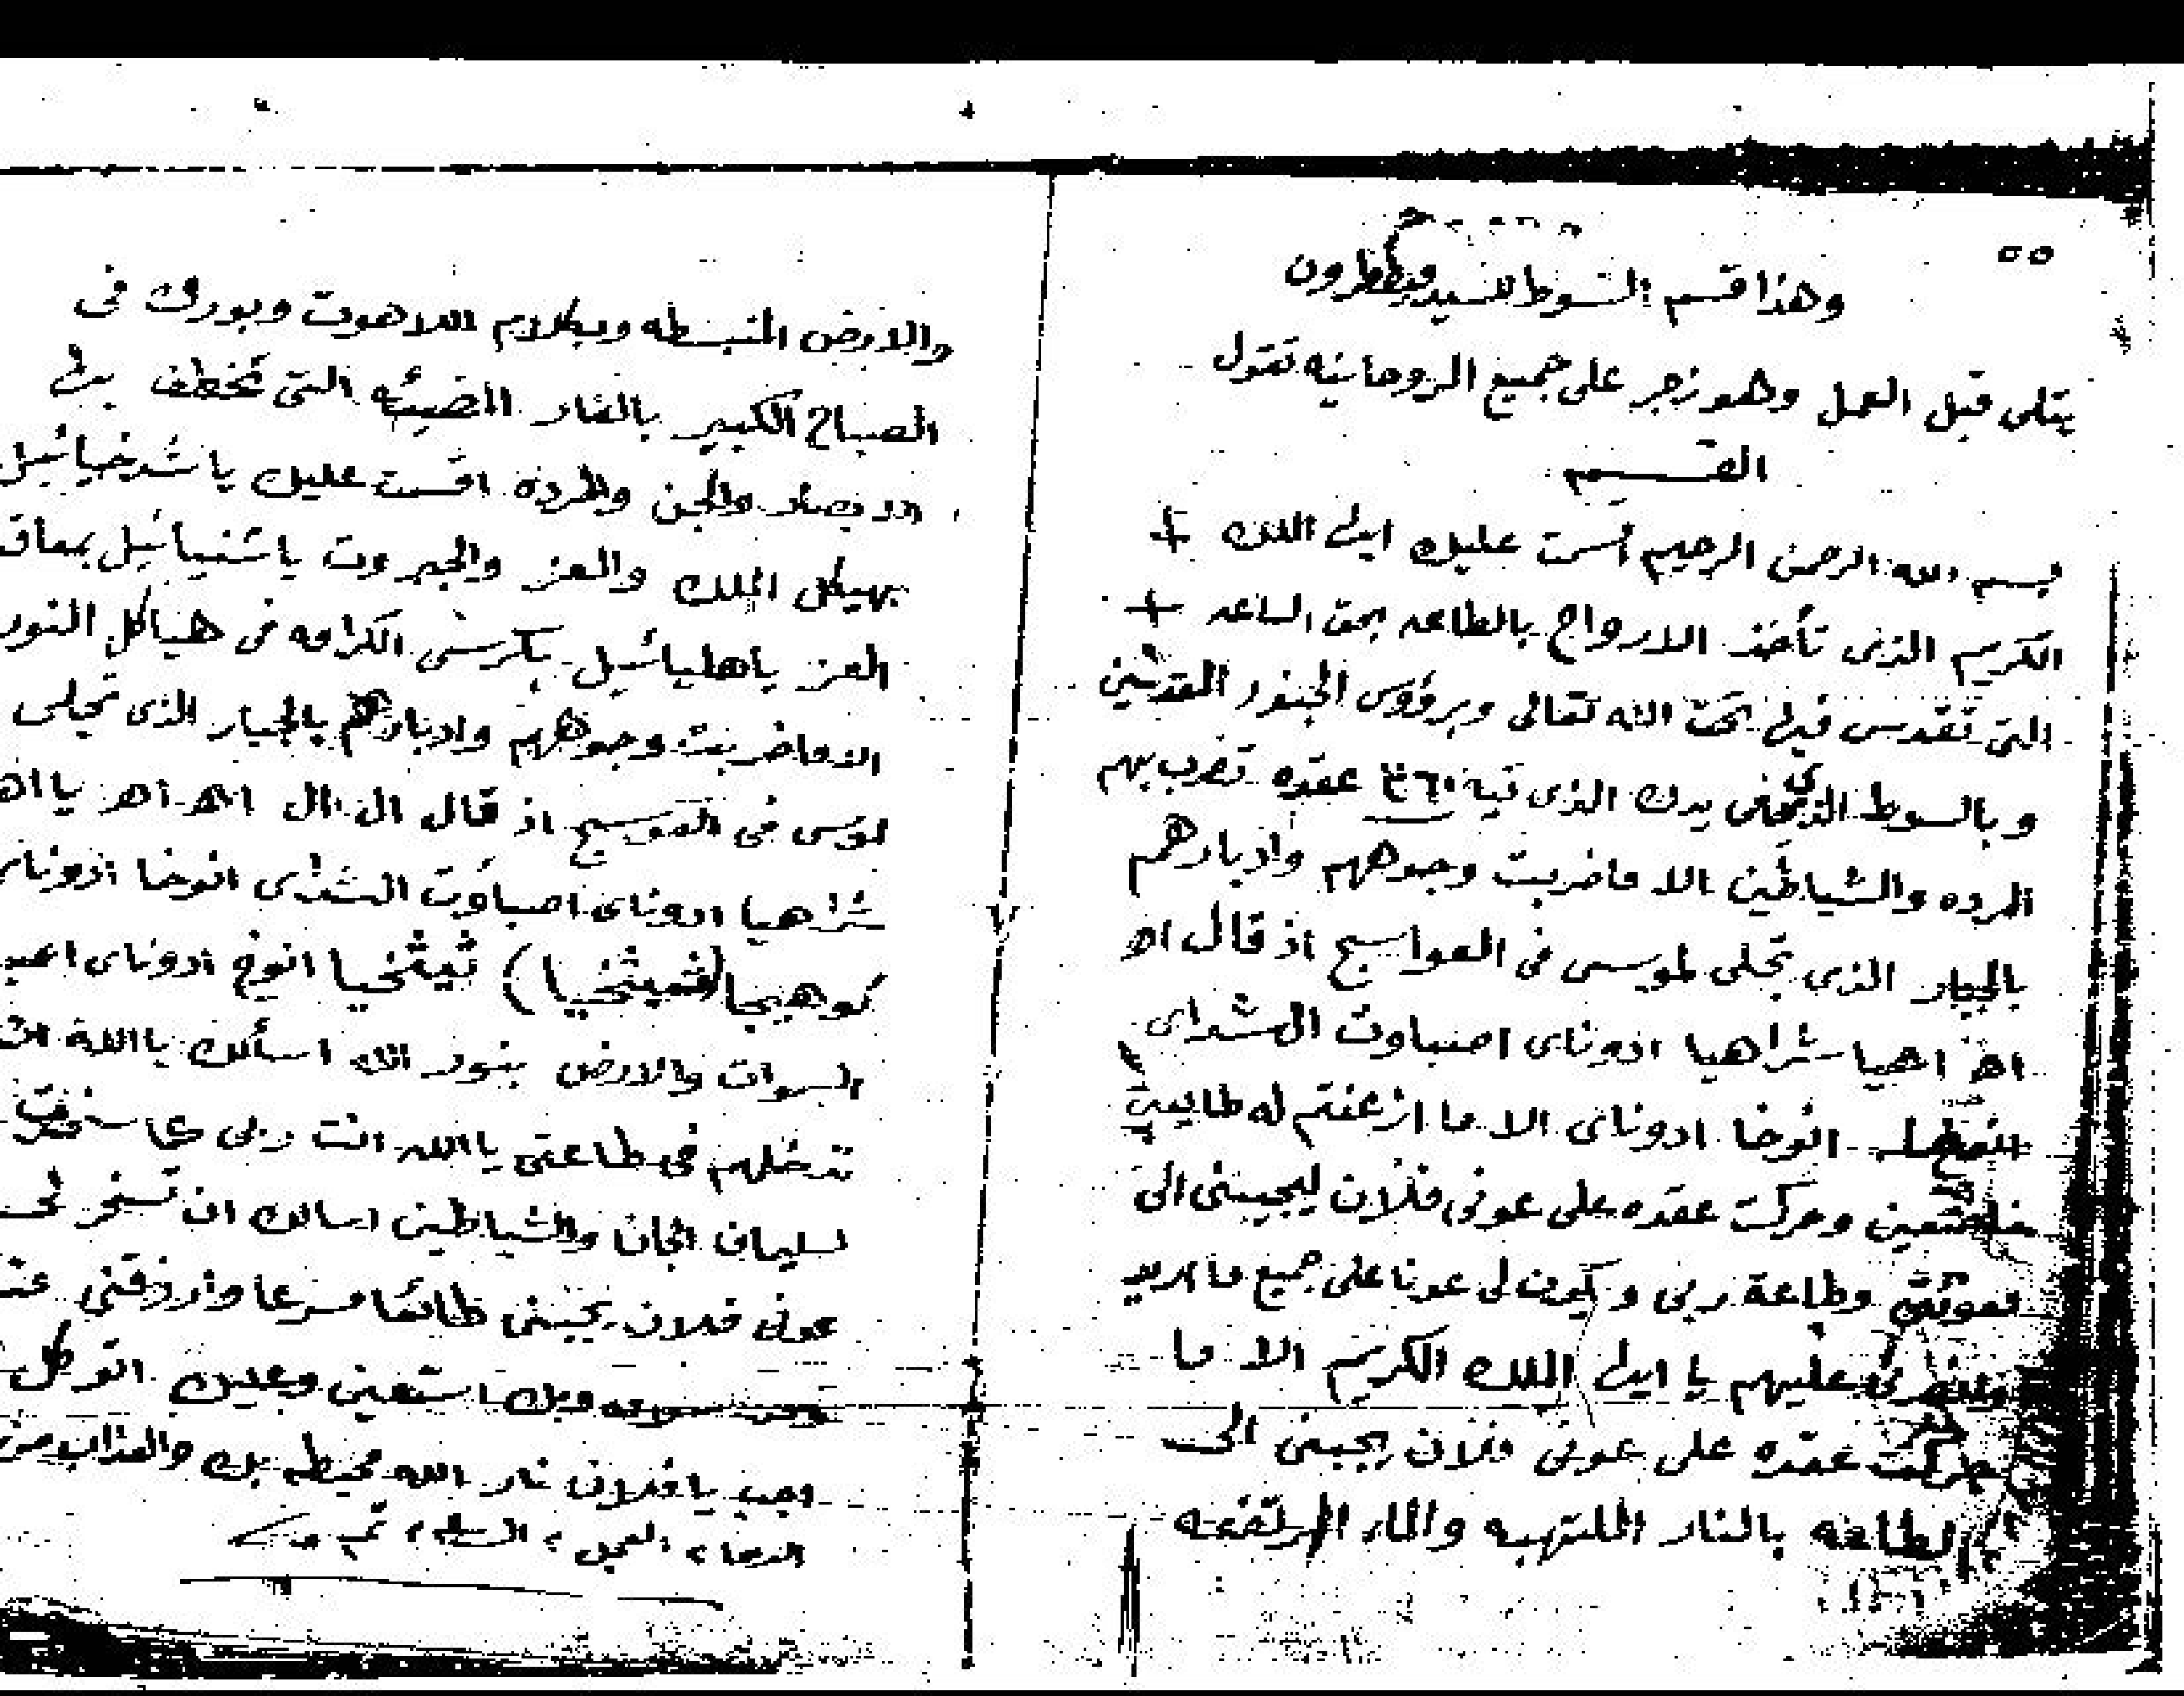 ٥٥
وهذا قسم السوط للسيد ميططرون
يتلى قبل العمل وهو زجر على جميع الروحانيه تقول
القسم
بسم الله الرحمن الرحيم أقسمت عليك ايها الملك +
الكريم الذى تأخذ الارواح بالطاعه بحق الساعه +
التى تقدس فيها تحت الله تعالى وبرؤوس الجنود
وبالسوط الذى فى يدك الذى فيه ٣٦٠ عقده تضرب بهم
المرده والشياطين الا ماضربت وجوههم وادبارهم
بالجبار الذى تجلى لموسى فى العواسج اذ قال اه
اه اهيا شراهيا ادوناى اصباوت ال شداى
انوخا ادوناى الا ما اذعنتم له طايعين
خاضعين وحركت عقده على عونى فلان ليجيبنى الى
وطاعة ربى ويكون لى عونا على جميع ما اريد
عليهم يا ايها الملك الكريم الا ما
حركت عقده على عونى فلان يجيبنى الى
الطاعه بالنار الملتهبه والماء المرتفعه
والارض المنبسطه وبكلام اللاهوت وبورك فى
الصباح الكبير بالنار المضيئه التى تخطف بها
الابصار والجن والمرده اقسمت عليك يا شدخيائيل
بهيكل الملك والعز والجبروت ياشنيائيل بمعاقد
العز ياهليائيل بكرسى الكرامه فى هياكل النور
الا ماضربت وجوههم وادبارهم بالجبار الذى تجلى
لموسى فى العوسج اذ قال ال ال اه اه يا اه
شراهيا ادوناى اصباؤت الشداى انوخا ادوناى
كوهيجا (ثميثخيا) ثيثخيا انوخ ادوناى
السموات والارض بنور الله اسألك ياالله ان
تدخلهم فى طاعتى ياالله انت ربى كما سخرت
لسليمان الجان والشياطين اسالك ان تسخر لى
عونى فلان يجيبنى طائعا مسرعا وارزقنى
وبك استعين وعليك اتوكل
اجب يا فلان نار الله محيطه بك والعذاب من
السماء العجل ٢ الساعه ٢ تم